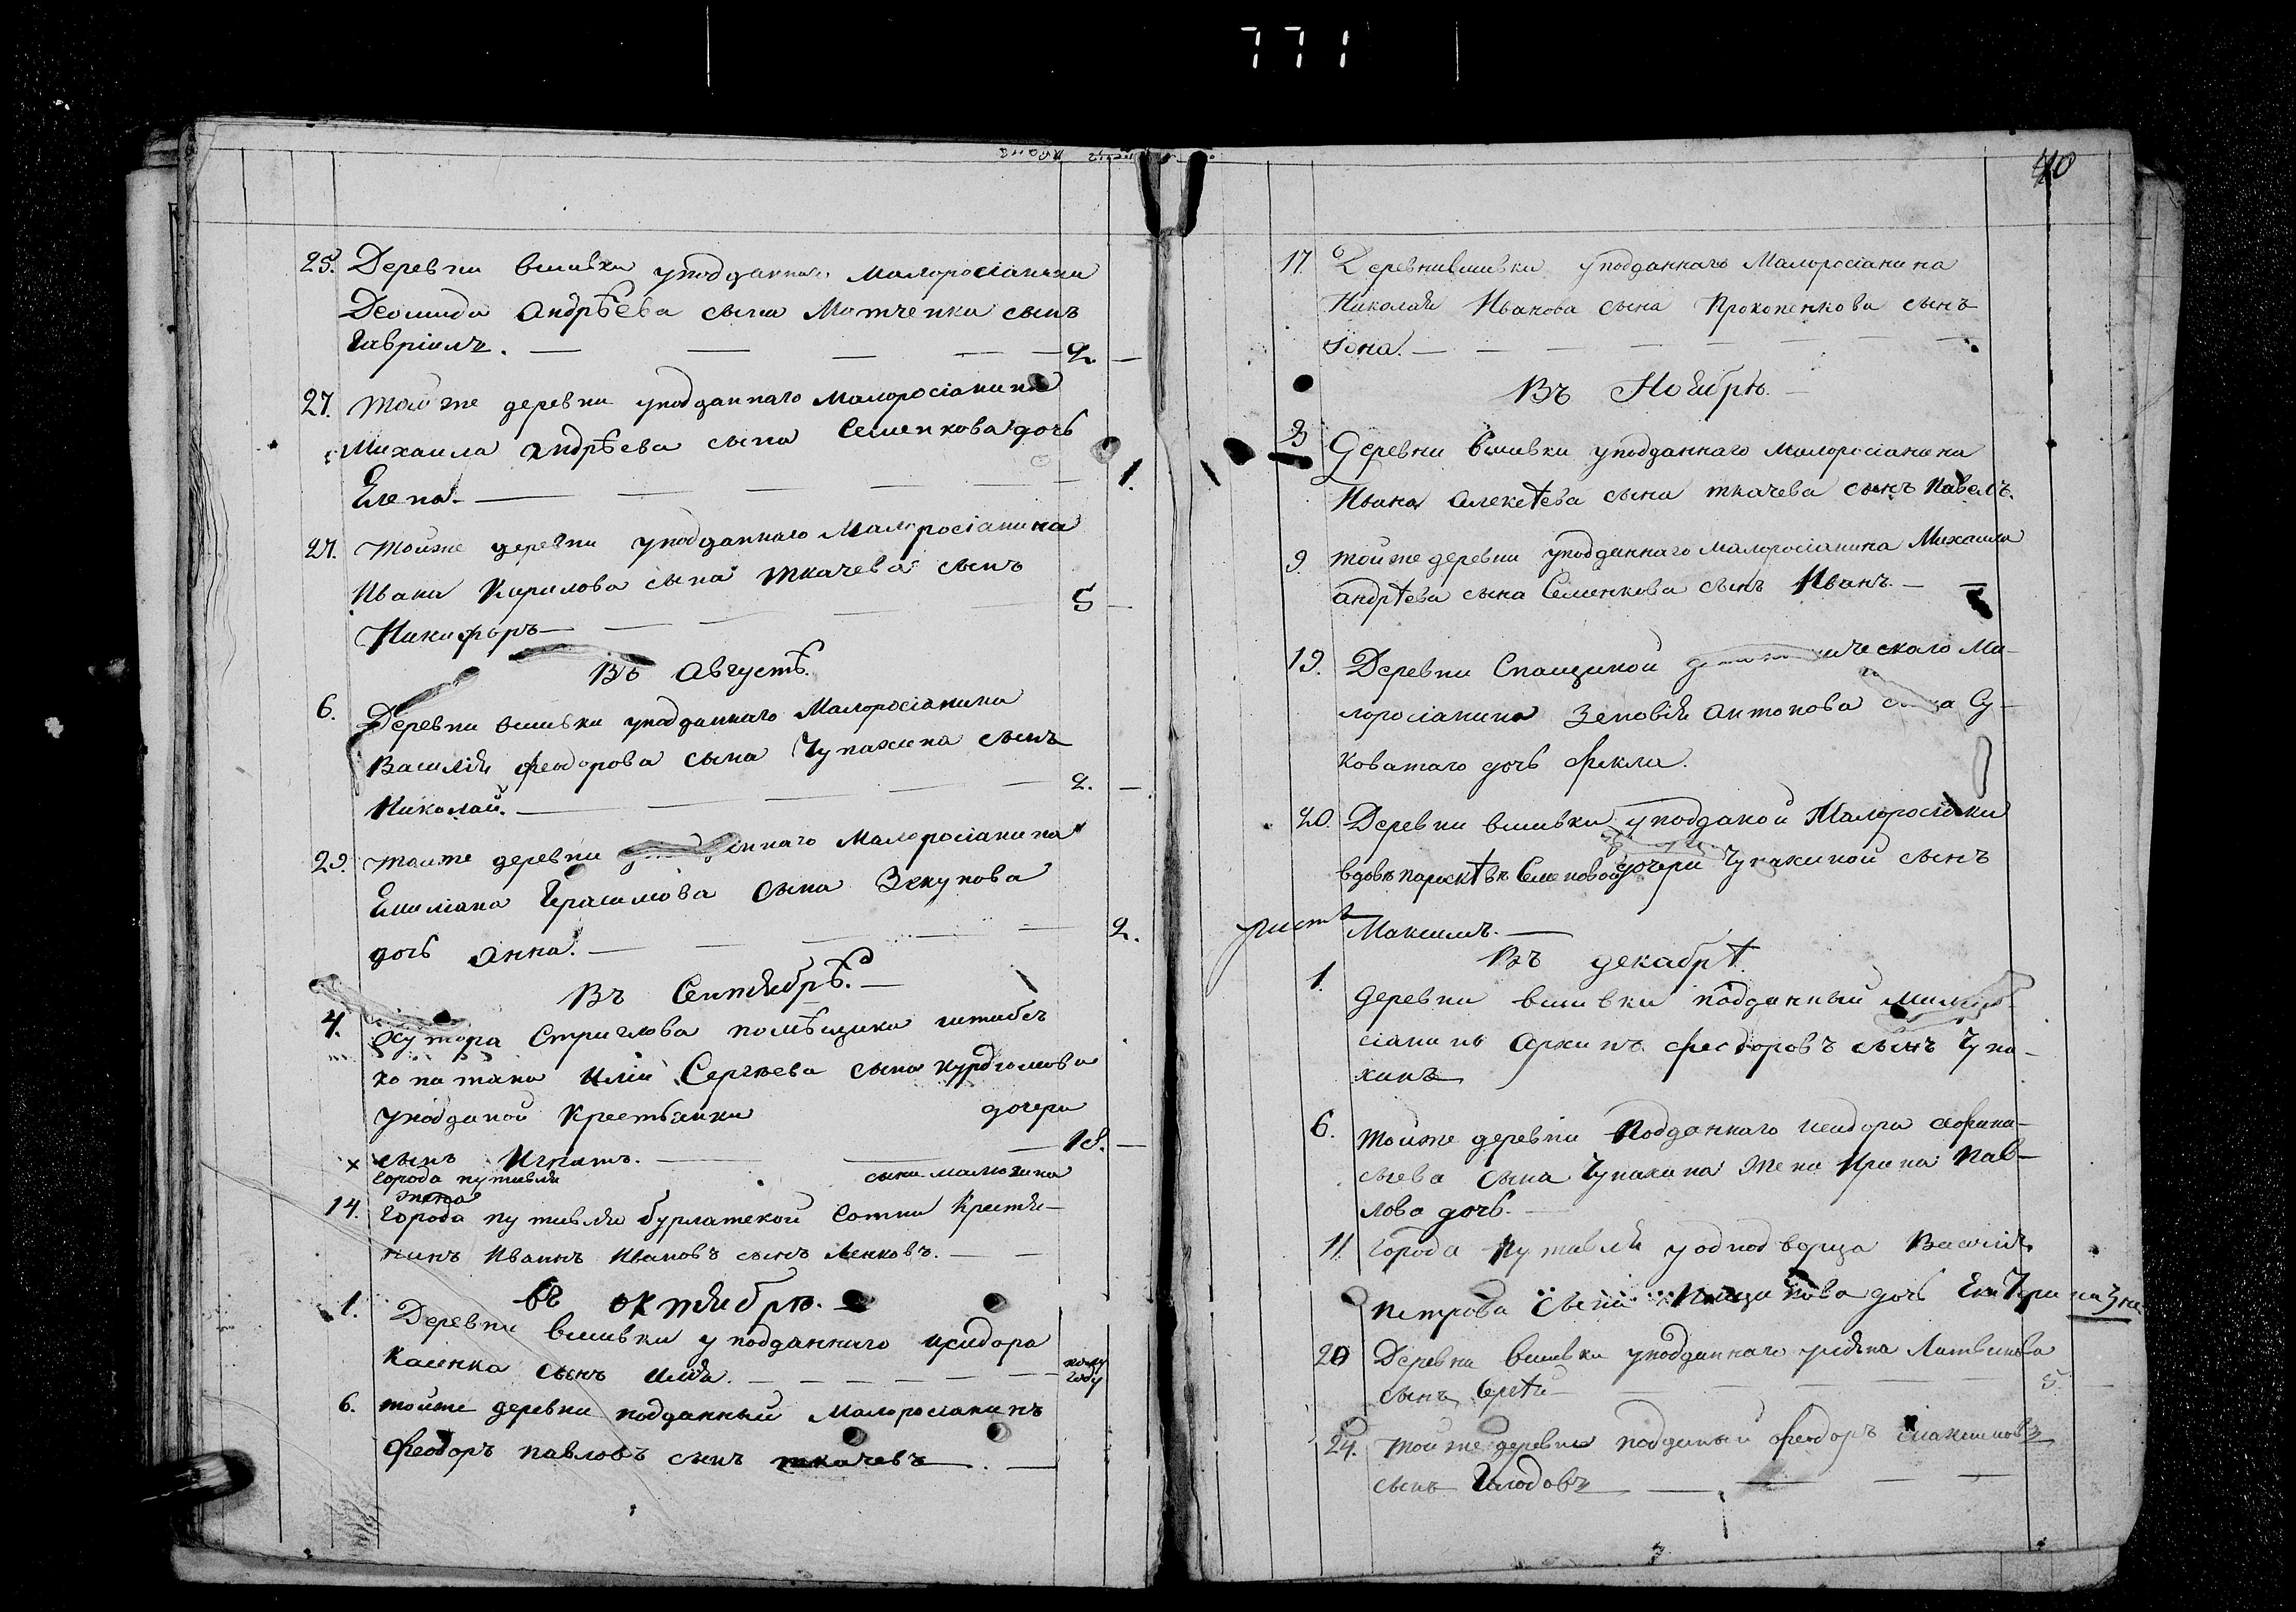 771
25. Деревни вшивки уподданнаго малоросіанина
Деомида Андрѣева сына Матченка сынъ
Гавріилъ. 2.
27. тойже деревни уподданнаго малоросіанина
Михаила Андрѣева сына Семенкова дочь
Елена. 1.
27. тойже деревни уподданнаго малоросіанина
Ивана Кирилова сына ткачева сынъ
Никифоръ 5
Въ Августѣ.
6. Деревни вшивки уподданнаго Малоросіанина
Василія феодорова сына Чупахина сынъ
Николай. 2.
29. тойже деревни малоросіанина
Емиліана Герасимова сына Зекунова
дочь Анна. 2.
Въ Сентябрѣ.
4. Хутора Стриглова помѣщика штабсъ
капитана Иліи Сергѣева сына
уподданой крестьянки дочери
сынъ Игнатъ.
города путивля сына малюхина
жена
14. города путивля бурлатской Сотни крестя-
нинъ Иваннъ Ивановъ сынъ Ленковъ.
въ октябрѣ.
1. Деревни вшивки уподданнаго исидора
касенка сынъ илія. полу
году
6. тойже деревни подданный малоросіанинъ
феодоръ павловъ сынъ ткачевъ
40
17. Деревнившивки уподданнаго Малоросіанина
Николая Иванова сына Прокопенкова сынъ
Іона.
Въ Ноябрѣ.
3 Деревни вшивки уподданнаго малоросіанина
Ивана алексѣева сына ткачева сынъ павелъ.
9. тойже деревни уподданнаго малоросіанина Михаила
андрѣева сына Семенкова сынъ Иванъ.
19. Деревни Спащиной ческаго Ма-
лоросіанина Зеновія антонова сына Су-
коватаго дочь Фекла.
20. Деревни вшивки уподданой Малоросіянки
вдовѣ параскѣвѣ Семеновой дочери Чупахиной сынъ
Максимъ.
Въ декабрѣ.
1. деревни вшивки подданный малоро-
сіанинъ Архипъ феодоровъ сынъ Чупа-
хинъ
6. тойже деревни подданнаго исидора афана-
сьева сына Чупахина жена Ирина пав-
лова дочь.
11. города путивля уоднодворца Василія
петрова сына дочь
20 Деревни вшивки уподданнаго Литвинова
сынъ Сергѣй 5.
24. тойже деревни подданый феодоръ максимовъ
сынъ Голодовъ